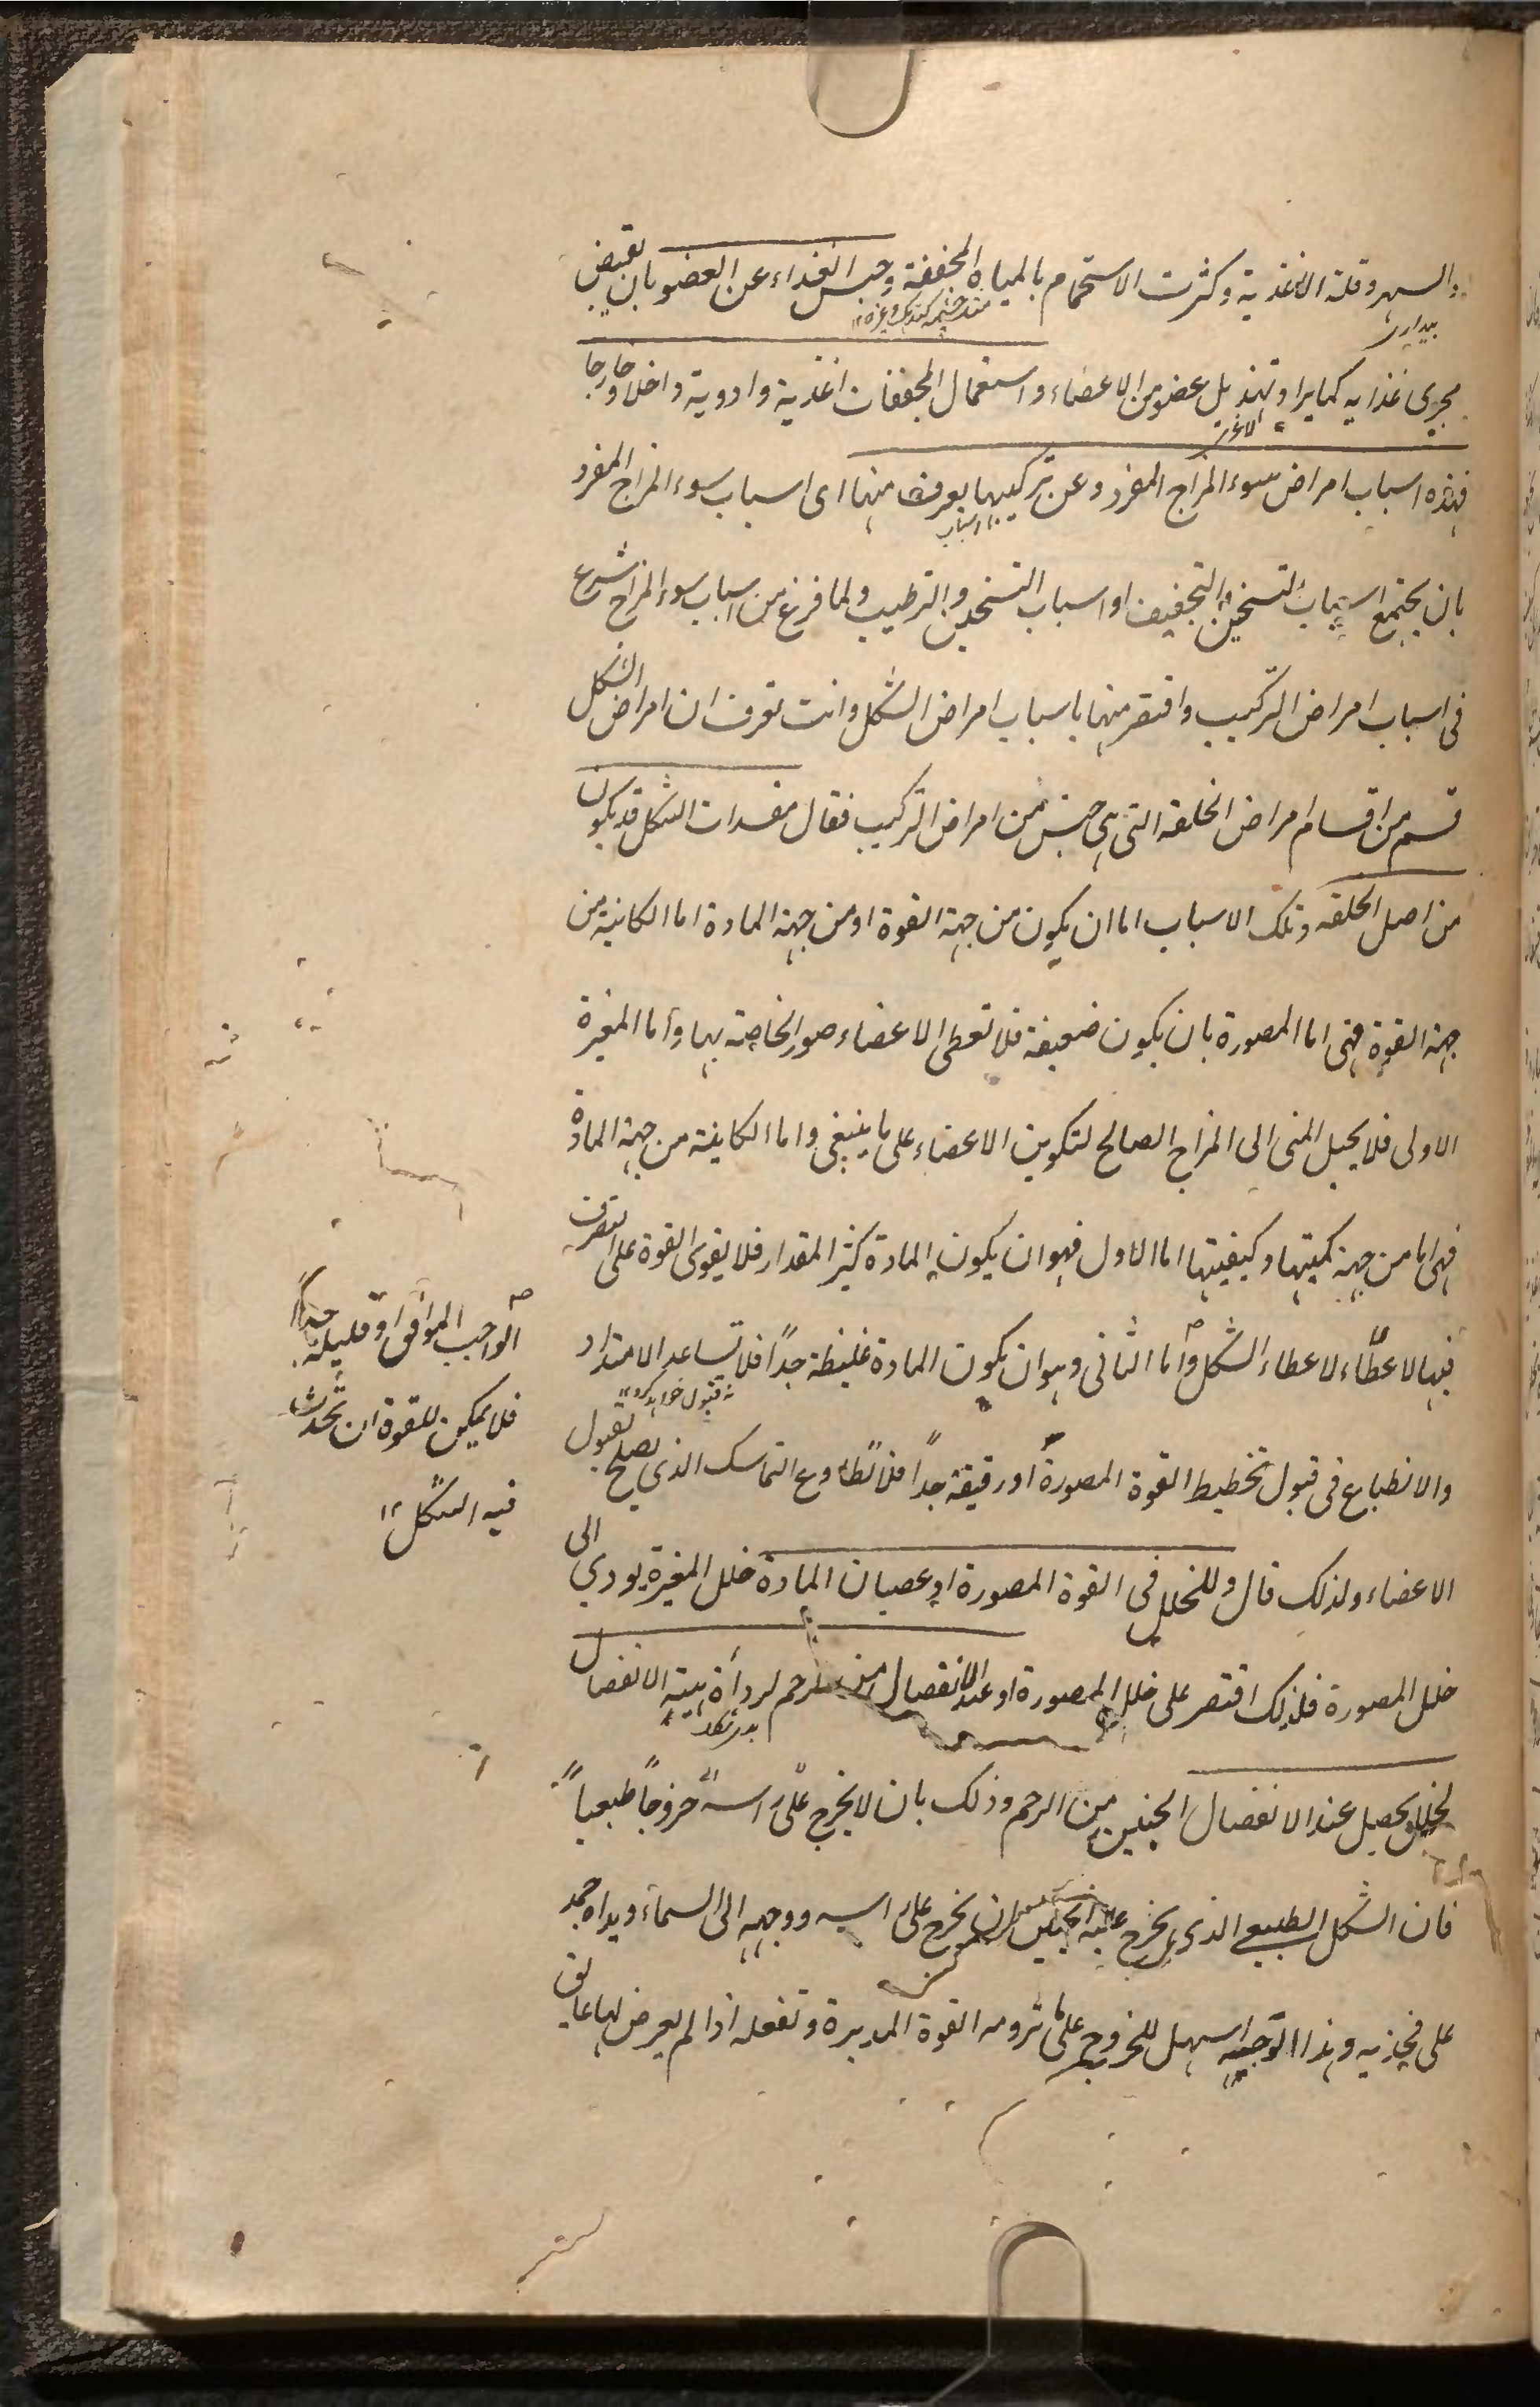 والسهر وقلة الاغذية وكثرت الاستحمام بالمياه المجففة وحبس الغذاء عن العضو بان يقبض
بيدارى
مجرى غذايه كمايرا ويهذيل عضو من الاعضاء واستعمال المجففات اغذية وادوية داخلا وخارجا
لاغر
فهذه اسباب امراض سوء المزاج المفرد وعن تركيبها يعرف منها اى اسباب سوء المزاج المفرد
اسباب
بان يجتمع اسباب التسخين والتجفيف او اسباب التسخين والترطيب ولما فرغ من اسباب سوء المزاج شرع
فى اسباب امراض التركيب واقتصر منها باسباب امراض الشكل وانت تعرف ان امراض الشكل
قسم من اقسام امراض الخلقه التى هى جنس من امراض التركيب فقال مفسدات الشكل قد يكون
من اصل الخلقه وتلك الاسباب اما ان يكون من جهة القوة او من جهة المادة اما الكاينة من
جهة القوة فهى اما المصورة بان يكون ضعيفة فلا تعطى الاعضاء صور الخاصة بها واما المغيرة
الاولى فلا يحيل المنى الى المزاج الصالح لتكوين الاعضاء على ما ينبغى واما الكاينة من جهة المادة
فهى اما من جهة كميتها وكيفيتها اما الاول فهو ان يكون المادة كثير المقدار فلا يقوى القوة على التصرف
فيها لاعطاء الشكل واما الثانى وهو ان يكون المادة غليظة جداً فلا تساعد الامتداد
والانطباع فى قبول تخطيط القوة المصورة او رقيقة جداً فلا تطاوع التماسك الذى يصلح لقبول
الاعضاء ولذلك قال وللخلل فى القوة المصورة او عصيان المادة خلل المغيرة يودي الى
خلل المصورة فلذلك اقتصر على خلل المصورة او عند الانفصال من الرحم لرداءة هيئة الانفصال
لخلل يحصل عند الانفصال الجنين من الرحم وذلك بان لا يخرج على راسه خروجاً طبيعياً
فان الشكل الطبيعى الذى يخرج عليه الجنين ان يخرج على راسه ووجهه الى السماء ويداه
على فخذيه وهذا التوجيه اسهل للخروج على ما ترومه القوة المدبرة وتفعله اذا لم يعرض لها عايق
الواجب الموافق او قليلة جداً
فلا يمكن للقوة ان تحدث
فيه الشكل